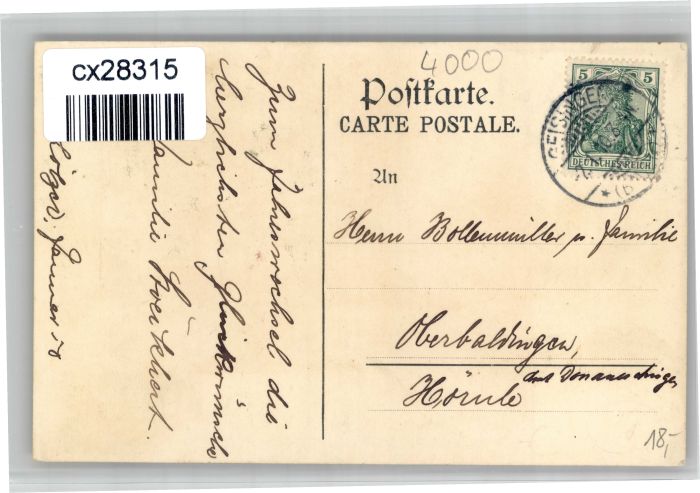 cx28315
4000
Postkarte.
CARTE POSTALE.
An
5 5
DEUTSCHES REICH
GEISINGEN
Herrn Bollenmüller u. Familie
Oberbaldingen,
Amt Donaueschingen
Hörnle
18,-
Zum Jahreswechsel die
herzlichsten Glückwünsche
Familie
Januar